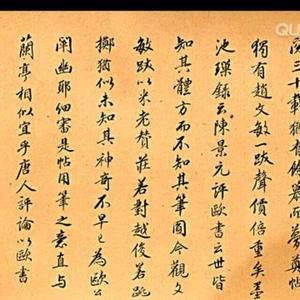 三十載猶有餘慕而夢奠帖
獨有趙文敏一跋聲價倍重矣墨
池璅錄云陳景元評歐書云世皆
知其體方而不知其筆圓今觀文
敏跋以米老贊莊若對越俊若跳
擲猶似未知其神奇不早已為歐公
闡幽耶細審是帖用筆之意直与
蘭亭相似宜乎唐人評論以歐書
QU